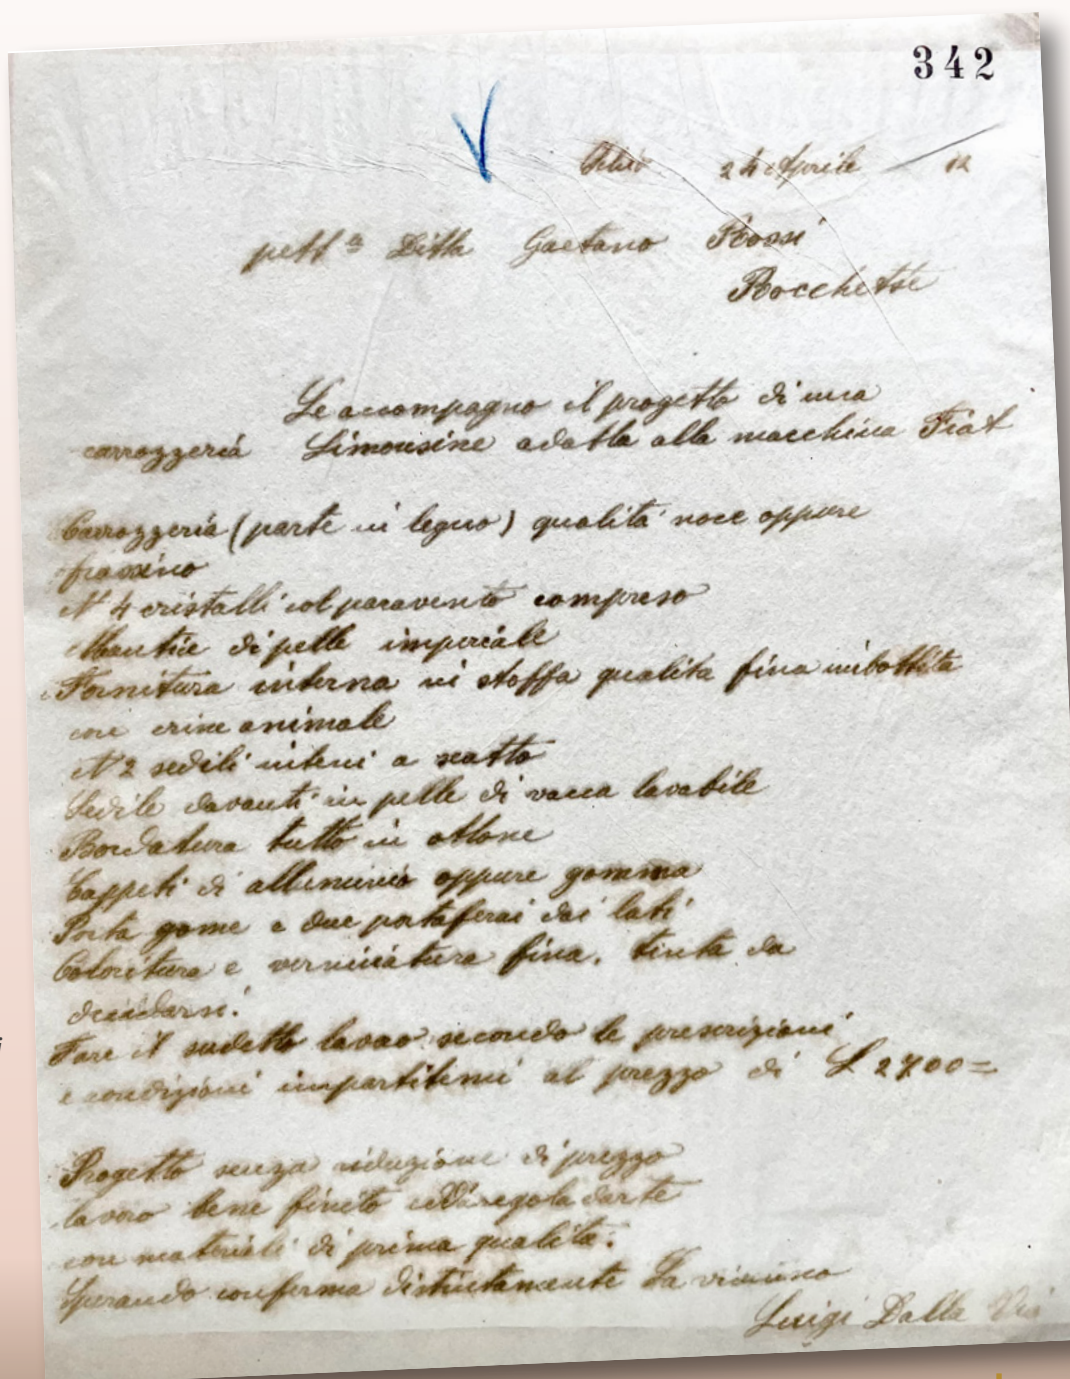 342
Schio 24 Aprile 12
pett ª Ditta Gaetano Rossi
Rocchette
Le accompagno il progetto di una
carrozzeria Limousine adatta alla macchina Fiat
Carrozzeria (parte in legno) qualità noce oppure
frassino
N 4 cristalli col paravento compreso
Mantice di pelle imperiale
Fornitura interna in stoffa qualita fina imbottita
con crine animale
N 2 sedili interni a scatto
Sedile davanti in pelle di vacca lavabile
Bordatura tutto in ottone
Tappeti di alluminio oppure gomma
Porta gome e due portaferai dai lati
Coloritura e verniciatura fina. tinta da
decidarsi.
Fare il sudetto lavoro secondo le prescrizioni
e condizioni impartitemi al prezzo di L 2700=
Progetto senza riduzione di prezzo
lavoro bene finito regola darte
con materiali di prima qualità.
Sperando conferma distintamente La
Luigi Dalla Via